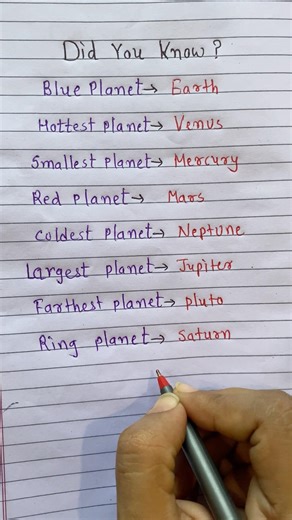 Did You Know?
Blue Planet→ Earth
Hottest planet→ Venus
Smallest planet→ Mercury
Red planet→ Mars
coldest planet→ Neptune
Largest planet→ Jupiter
Farthest planet→ pluto
Ring planet→ Saturn